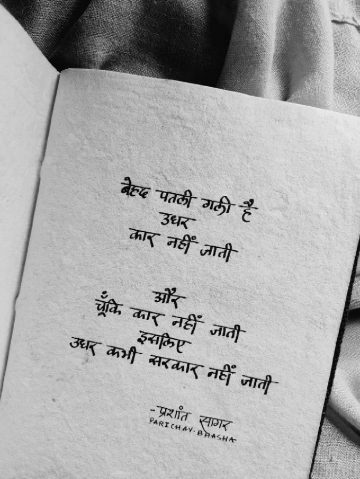 बेहद पतली गली है
उधर
कार नहीं जाती
और
चूँकि कार नहीं जाती
इसलिए
उधर कभी सरकार नहीं जाती
-प्रशांत सागर
PARICHAY.BHASHA